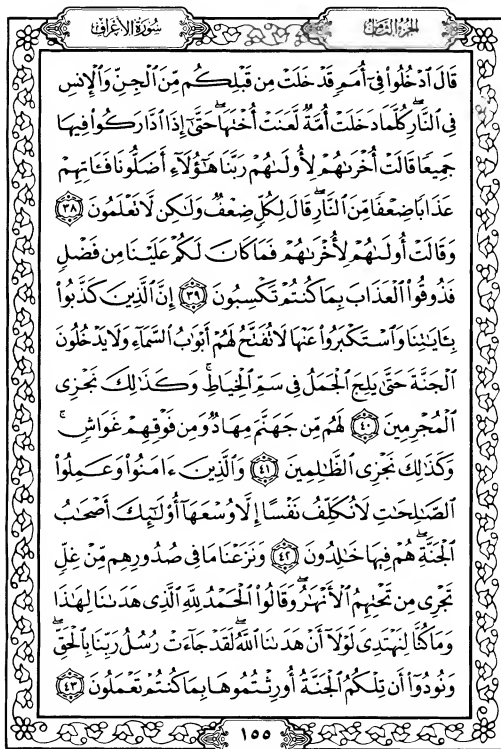 سُورَةُ الأَعْرَافِ
الجُزْءُ الثَّامِنُ
قَالَ ادْخُلُوا فِي أُمَمٍ قَدْ خَلَتْ مِن قَبْلِكُم مِّنَ الْجِنِّ وَالْإِنسِ
فِي النَّارِ ۖ كُلَّمَا دَخَلَتْ أُمَّةٌ لَّعَنَتْ أُخْتَهَا ۖ حَتَّىٰ إِذَا ادَّارَكُوا فِيهَا
جَمِيعًا قَالَتْ أُخْرَىٰهُمْ لِأُولَىٰهُمْ رَبَّنَا هَٰؤُلَاءِ أَضَلُّونَا فَـَٔاتِهِمْ
عَذَابًا ضِعْفًا مِّنَ النَّارِ ۖ قَالَ لِكُلٍّ ضِعْفٌ وَلَٰكِن لَّا تَعْلَمُونَ ٣٨
وَقَالَتْ أُولَىٰهُمْ لِأُخْرَىٰهُمْ فَمَا كَانَ لَكُمْ عَلَيْنَا مِن فَضْلٍ
فَذُوقُوا الْعَذَابَ بِمَا كُنتُمْ تَكْسِبُونَ ٣٩ إِنَّ الَّذِينَ كَذَّبُوا
بِـَٔايَٰتِنَا وَاسْتَكْبَرُوا عَنْهَا لَا تُفَتَّحُ لَهُمْ أَبْوَٰبُ السَّمَاءِ وَلَا يَدْخُلُونَ
الْجَنَّةَ حَتَّىٰ يَلِجَ الْجَمَلُ فِي سَمِّ الْخِيَاطِ ۚ وَكَذَٰلِكَ نَجْزِي
الْمُجْرِمِينَ ٤٠ لَهُم مِّن جَهَنَّمَ مِهَادٌ وَمِن فَوْقِهِمْ غَوَاشٍ ۚ
وَكَذَٰلِكَ نَجْزِي الظَّٰلِمِينَ ٤١ وَالَّذِينَ ءَامَنُوا وَعَمِلُوا
الصَّٰلِحَٰتِ لَا نُكَلِّفُ نَفْسًا إِلَّا وُسْعَهَا أُولَٰئِكَ أَصْحَٰبُ
الْجَنَّةِ ۖ هُمْ فِيهَا خَٰلِدُونَ ٤٢ وَنَزَعْنَا مَا فِي صُدُورِهِم مِّنْ غِلٍّ
تَجْرِي مِن تَحْتِهِمُ الْأَنْهَٰرُ ۖ وَقَالُوا الْحَمْدُ لِلَّهِ الَّذِي هَدَىٰنَا لِهَٰذَا
وَمَا كُنَّا لِنَهْتَدِيَ لَوْلَا أَنْ هَدَىٰنَا اللَّهُ ۖ لَقَدْ جَاءَتْ رُسُلُ رَبِّنَا بِالْحَقِّ ۖ
وَنُودُوا أَن تِلْكُمُ الْجَنَّةُ أُورِثْتُمُوهَا بِمَا كُنتُمْ تَعْمَلُونَ ٤٣
١٥٥